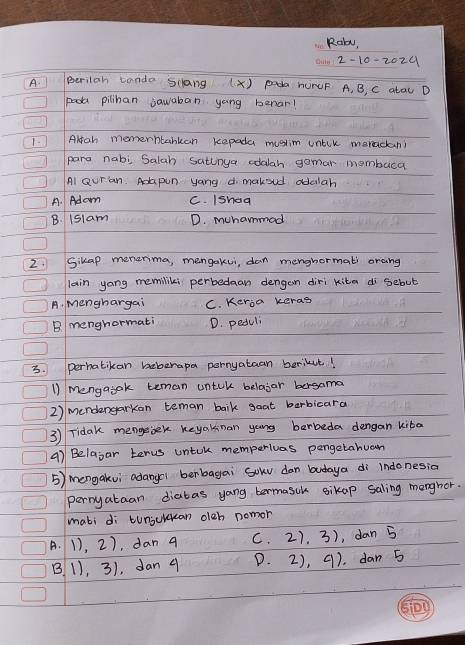 No. Rabu,
Date: 2-10-2024
A. Berilah tanda silang (x) pada huruf A, B, C atau D
pada pilihan jawaban yang benar!
1. Allah memerintahkan kepada muslim untuk meneladani
para nabi, Salah satunya adalah gemar membaca
Al Qur'an. Adapun yang dimaksud adalah .....
A. Adam C. Ishaq
B. Islam D. Muhammad
2. Sikap menerima, mengakui, dan menghormati orang
lain yang memiliki perbedaan dengan diri kita di sebut
A. Menghargai C. Kerja keras
B. menghormati D. peduli
3. perhatikan beberapa pernyataan berikut!
1) Mengajak teman untuk belajar bersama
2) Mendengarkan teman baik saat berbicara
3) Tidak mengejek keyakinan yang berbeda dengan kita
4) Belajar terus untuk memperluas pengetahuan
5) mengakui adanya berbagai suku dan budaya di Indonesia
pernyataan diatas yang termasuk sikap saling menghor-
mati di tunjukkan oleh nomor
A. 1), 2), dan 4 C. 2), 3), dan 5
B. 1), 3), dan 4 D. 2), 4), dan 5
SiDU